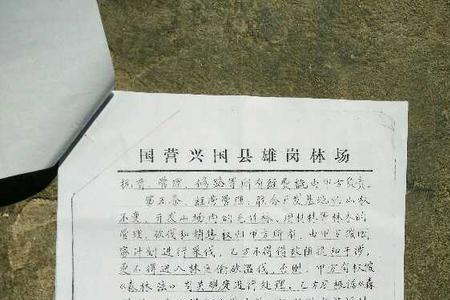 国营兴国县雄岗林场
抚育、管理、修路等所有经费概由甲方负责。
第五条、经营管理、联合开发基地的山权
不变,开发山场内的毛竹林、用材林等林木的
管理、砍伐和销售权归甲方所有,由甲方按国
家计划进行采伐,乙方不得得故阻挠和干涉,
更不得进入林区偷砍滥伐,否则,甲方有权按
《森林法》有关规定进行处理,乙方应按《森